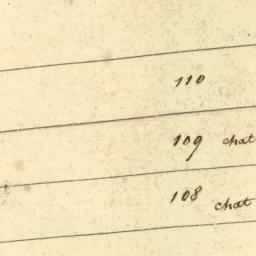 110
109 chat
108 chat